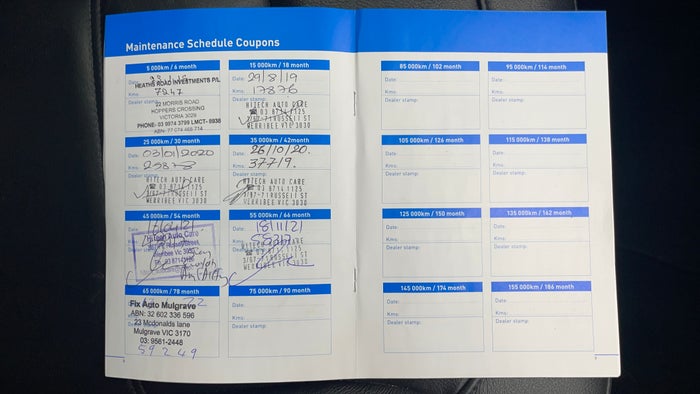 Maintenance Schedule Coupons
5 000km / 6 month
Date:
HEATHS ROAD INVESTMENTS P/L
Kms: 7247
Dealer stamp:
22 MORRIS ROAD
HOPPERS CROSSING
VICTORIA 3029
PHONE: 03 9974 3799 LMCT- 9938
15 000km / 18 month
Date: 29/8/19
Kms: 17876
Dealer stamp:
HITECH AUTO CARE
☎ 03 9714 1125
3/67-71 RUSSELL ST
WERRIBEE VIC 3030
25 000km / 30 month
Date: 03/01/2020
Kms:
Dealer stamp:
HITECH AUTO CARE
☎ 03 9714 1125
3/67-71 RUSSELL ST
WERRIBEE VIC 3030
35 000km / 42month
Date: 26/10/20.
Kms: 37719.
Dealer stamp:
HITECH AUTO CARE
☎ 03 9714 1125
3/67-71 RUSSELL ST
WERRIBEE VIC 3030
45 000km / 54 month
Hitech Auto Care
Werribee Vic 3030
55 000km / 66 month
Date: 18/11/21
Kms:
Dealer stamp:
HITECH AUTO CARE
☎ 03 9714 1125
3/67-71 RUSSELL ST
WERRIBEE VIC 3030
65 000km / 78 month
22
Fix Auto Mulgrave
ABN: 32 602 336 596
23 Mcdonalds lane
Mulgrave VIC 3170
03: 9561-2448
59249
75 000km / 90 month
Date:
Kms:
Dealer stamp:
85 000km / 102 month
Date:
Kms:
Dealer stamp:
95 000km / 114 month
Date:
Kms:
Dealer stamp:
105 000km / 126 month
Date:
Kms:
Dealer stamp:
115 000km / 138 month
Date:
Kms:
Dealer stamp:
125 000km / 150 month
Date:
Kms:
Dealer stamp:
135 000km / 162 month
Date:
Kms:
Dealer stamp:
145 000km / 174 month
Date:
Kms:
Dealer stamp:
155 000km / 186 month
Date:
Kms:
Dealer stamp: